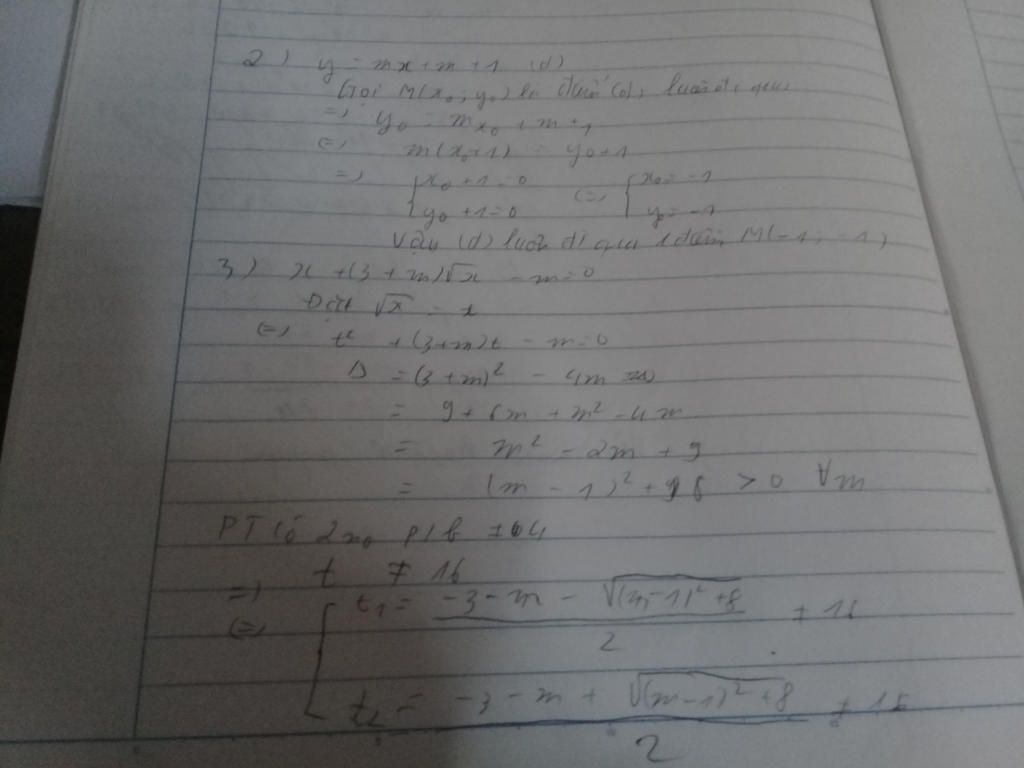 2) y = mx + m + 1 (d)
Gọi M(x₀; y₀) là điểm (d) luôn đi qua
=> y₀ = mx₀ + m + 1
<=> m(x₀+1) = y₀+1
=> { x₀ + 1 = 0 <=> { x₀ = -1
y₀ + 1 = 0 y₀ = -1
Vậy (d) luôn đi qua 1 điểm M(-1; -1)
3) x + (3 + m)√x - m = 0
Đặt √x = t
<=> t² + (3+m)t - m = 0
Δ = (3 + m)² - 4m
= 9 + 6m + m² - 4m
= m² - 2m + 9
= (m - 1)² + 8 > 0 ∀m
PT có 2 n₀ p/b
=> t ≠ 16
<=> [ t₁ = (-3 - m - √((m-1)² + 8))/2 ≠ 16
t₂ = (-3 - m + √((m-1)² + 8))/2 ≠ 16